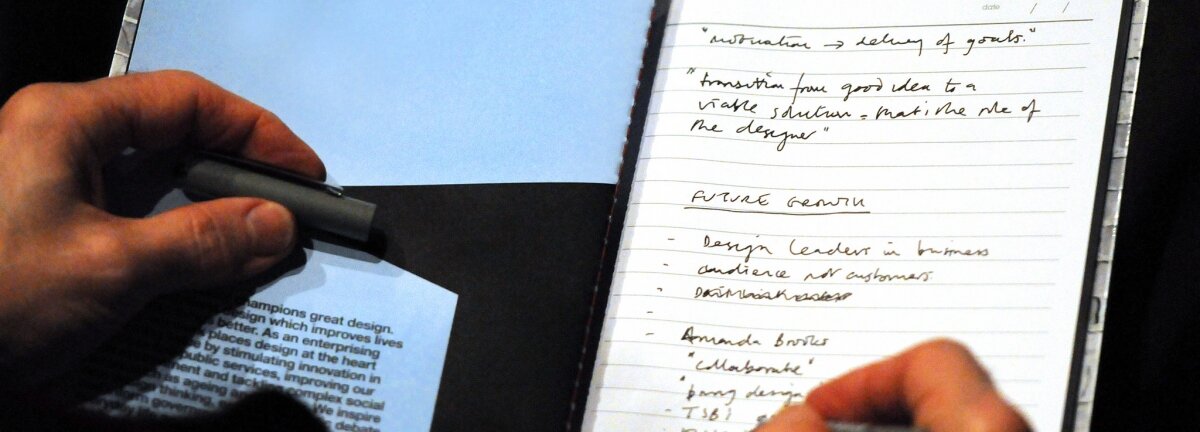 hampions great design.
sign which improves lives
better. As an enterprising
places design at the heart
by stimulating innovation in
public services, improving our
ment and tackling complex social
as ageing and
thinking,
govern We inspire
debate
date / /
"motivation → delivery of goals."
"transition from good idea to a
viable solution = that's the role of
the designer"
FUTURE GROWTH
- Design leaders in business
- audience not customers
-
-
- Amanda Brooks
"collaborate"
"bring design
- TSB